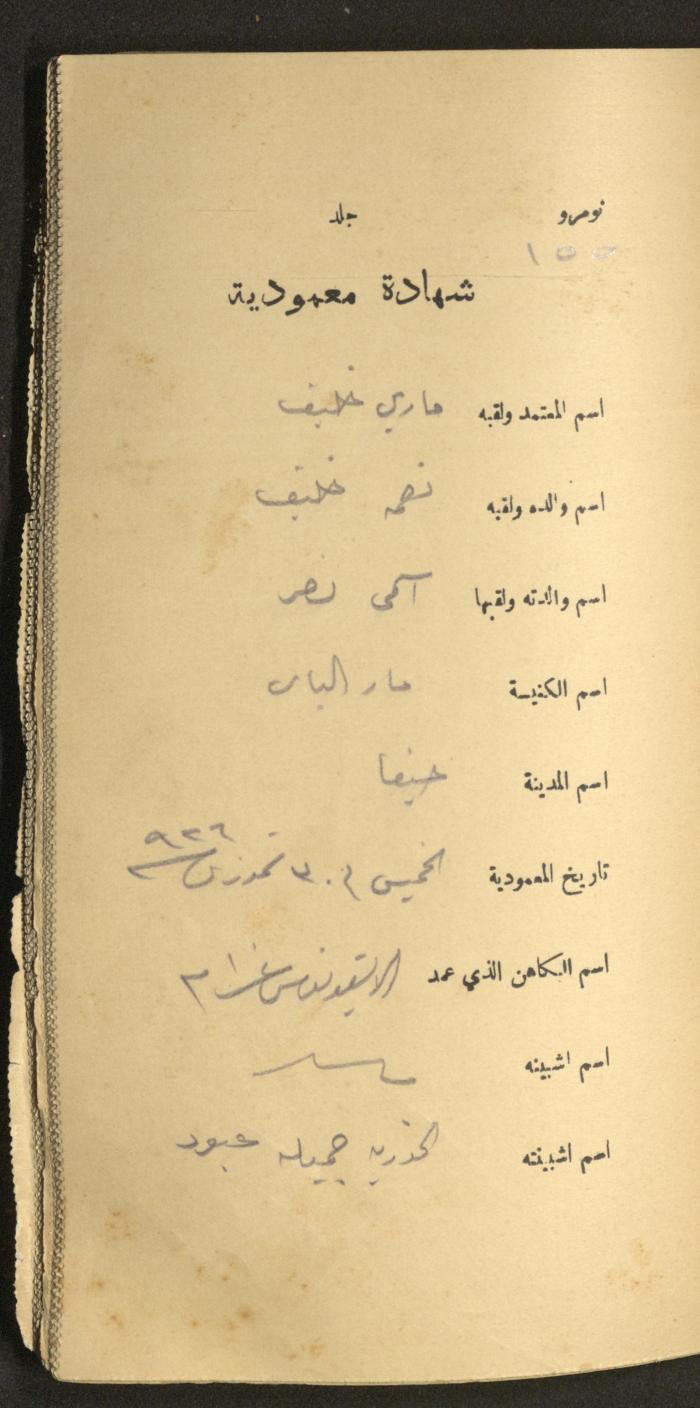 نومرو جلد
١٥٥
شهادة معمودية
اسم المعتمد ولقبه ماري خليف
اسم والده ولقبه نعمه خليف
اسم والدته ولقبها اسمى نصر
اسم الكنيسة مار الياس
اسم المدينة حيفا
تاريخ المعمودية الخميس ٣٠ تموز ٩٢٦
اسم الكاهن الذي عمد
اسم اشبينه
اسم اشبينته الخوريه جميله عبود